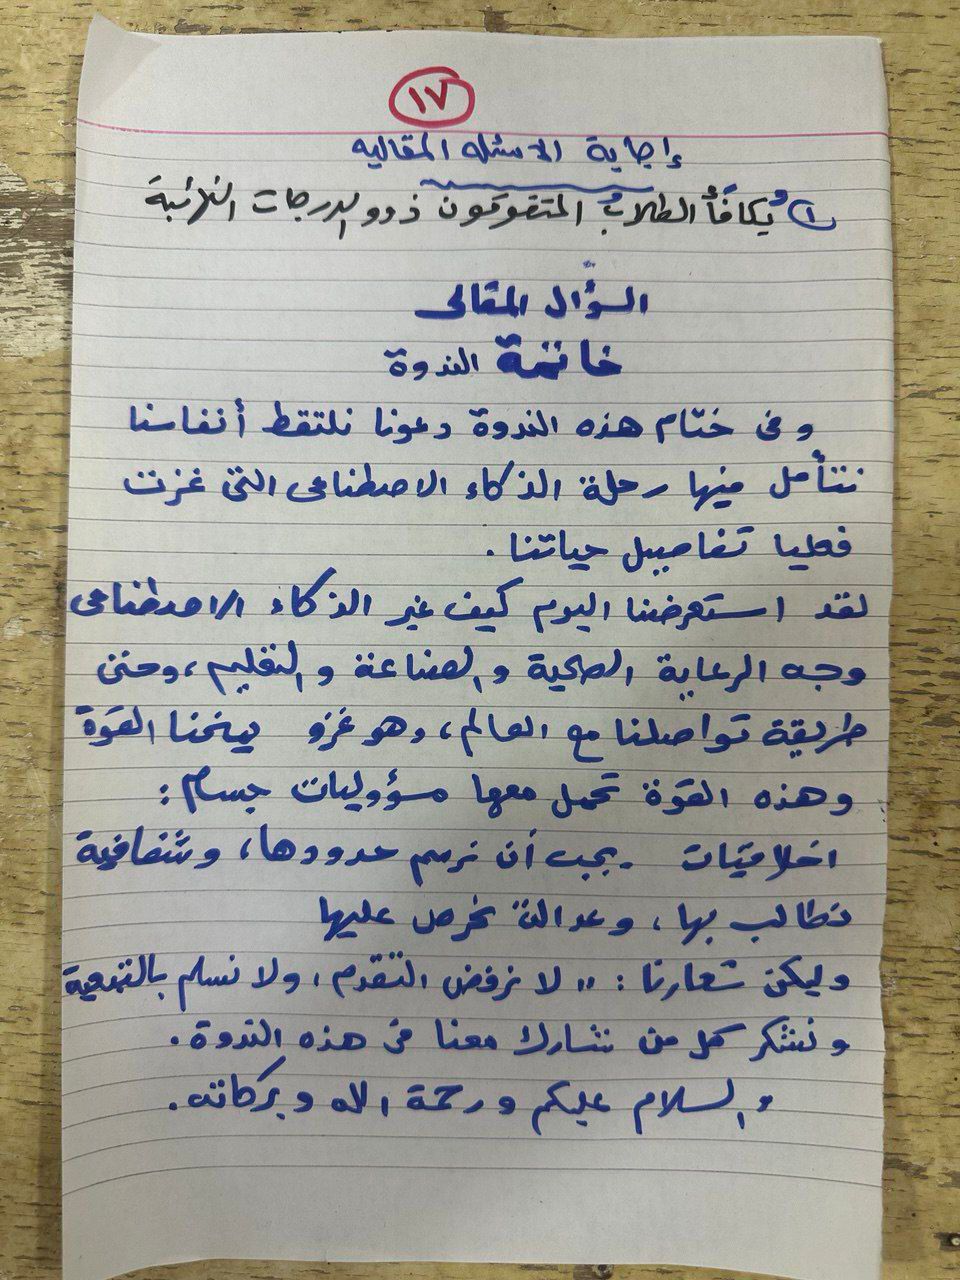 ١٧
إجابة الاسئله المقاليه
١) يُكافَأُ الطلابُ المتفوقون ذوو الدرجات النهائية
السؤال المقالى
خاتمة الندوة
وفى ختام هذه الندوة دعونا نلتقط أنفاسنا
نتأمل فيها رحلة الذكاء الاصطناعى التى غزت
فعليا تفاصيل حياتنا.
لقد استعرضنا اليوم كيف غير الذكاء الاصطناعى
وجه الرعاية الصحية والصناعة والتعليم، وحتى
طريقة تواصلنا مع العالم، وهو غزو يمنحنا القوة
وهذه القوة تحمل معها مسؤوليات جسام:
اخلاقيات يجب أن نرسم حدودها، وشفافية
نطالب بها، وعدالة نحرص عليها
وليكن شعارنا: " لا نرفض التقدم، ولا نسلم بالتبعية
ونشكر كل من شارك معنا فى هذه الندوة.
والسلام عليكم ورحمة الله وبركاته.